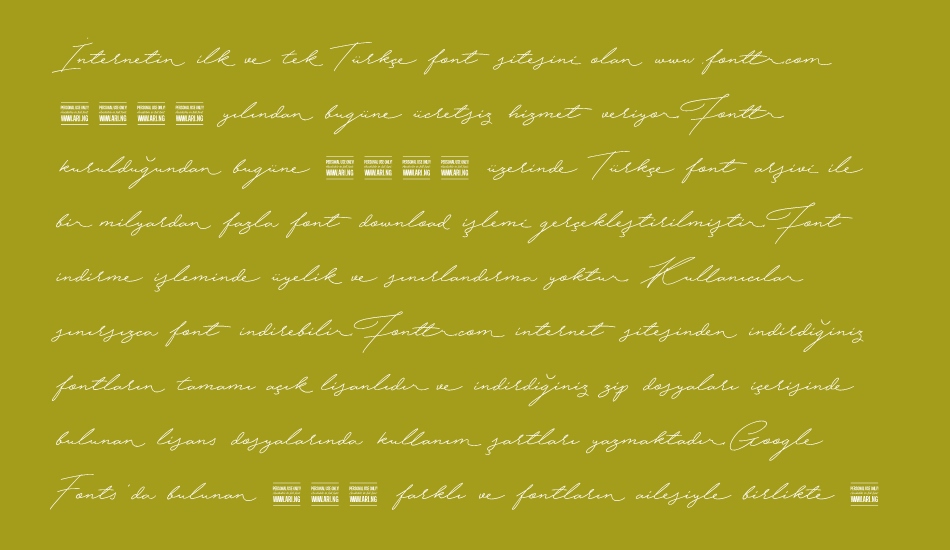 İnternetin ilk ve tek Türkçe font sitesini olan www.fonttr.com
PERSONAL USE ONLY WWW.ARI.NG PERSONAL USE ONLY WWW.ARI.NG PERSONAL USE ONLY WWW.ARI.NG PERSONAL USE ONLY WWW.ARI.NG yılından bugüne ücretsiz hizmet veriyor. Fonttr
kurulduğundan bugüne PERSONAL USE ONLY WWW.ARI.NG PERSONAL USE ONLY WWW.ARI.NG PERSONAL USE ONLY WWW.ARI.NG PERSONAL USE ONLY WWW.ARI.NG üzerinde Türkçe font arşivi ile
bir milyardan fazla font download işlemi gerçekleştirilmiştir. Font
indirme işleminde üyelik ve sınırlandırma yoktur. Kullanıcılar
sınırsızca font indirebilir. Fonttr.com internet sitesinden indirdiğiniz
fontların tamamı açık lisanlıdır ve indirdiğiniz zip dosyaları içerisinde
bulunan lisans dosyalarında kullanım şartları yazmaktadır. Google
Fonts'da bulunan PERSONAL USE ONLY WWW.ARI.NG PERSONAL USE ONLY WWW.ARI.NG PERSONAL USE ONLY WWW.ARI.NG farklı ve fontların ailesiyle birlikte PERSONAL USE ONLY WWW.ARI.NG